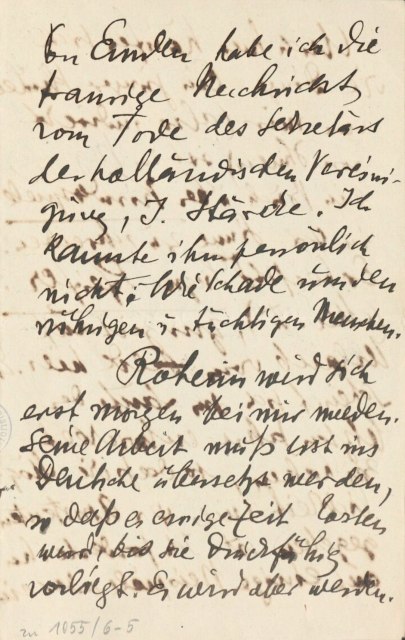 Von Emden habe ich die
traurige Nachricht
vom Tode des Sekretärs
der holländischen Vereini-
gung, J. Stärcke. Ich
kannte ihn persönlich
nicht; Wie schade um den
ruhigen u. tüchtigen Menschen.
Roheim wird sich
erst morgen bei mir melden.
Seine Arbeit muß erst ins
Deutsche übersetzt werden,
so daß es einige Zeit kosten
wird, bis sie druckfähig
vorliegt. Es wird aber werden.
zu 1055/6-5